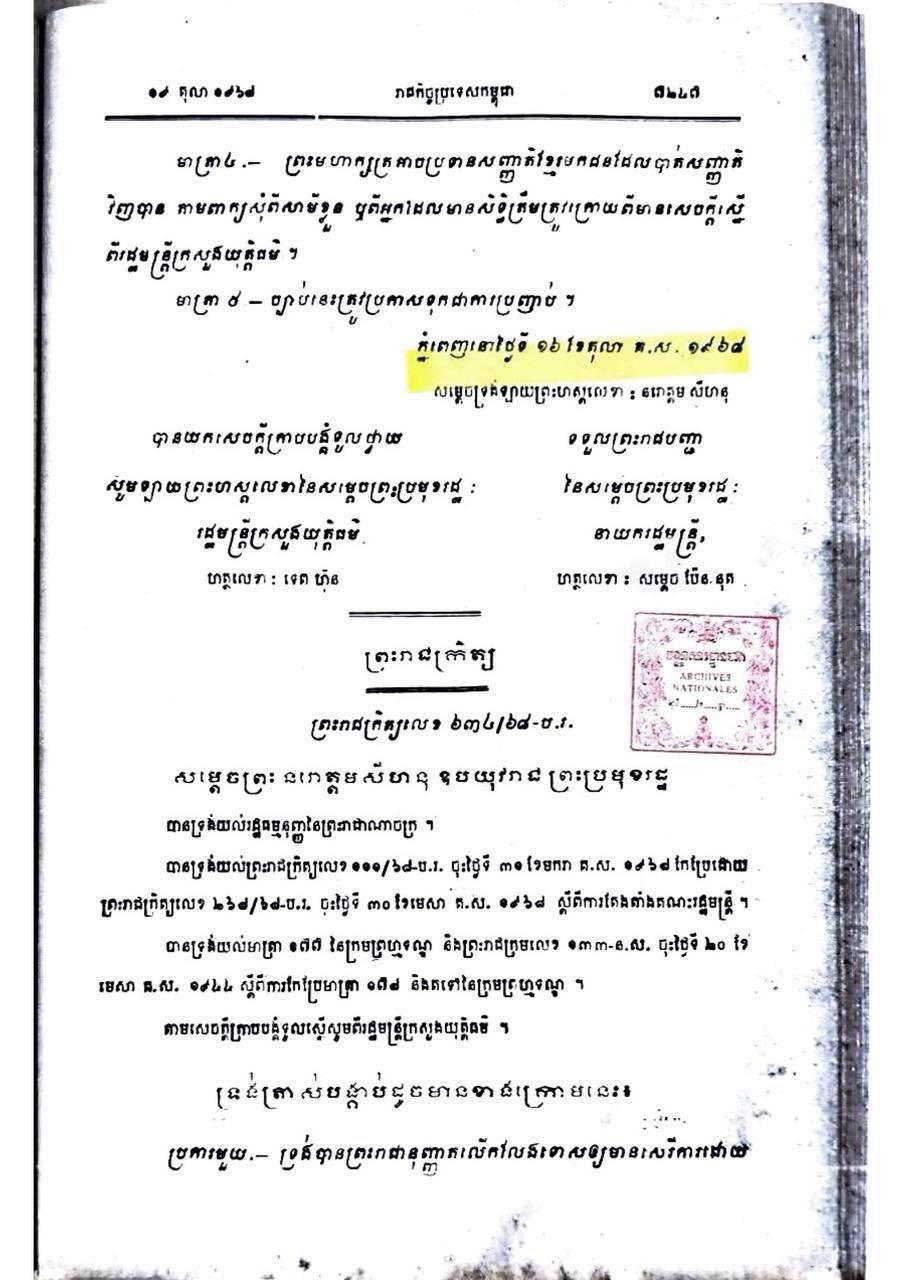 ១៩ តុលា ១៩៦៨ រាជកិច្ចប្រទេសកម្ពុជា ៧២៤៧
មាត្រា៤.— ព្រះមហាក្សត្រអាចប្រទានសញ្ជាតិខ្មែរមកជនដែលបាត់សញ្ជាតិ
វិញបាន តាមពាក្យសុំពីសាមីខ្លួន ឬពីអ្នកដែលមានសិទ្ធិត្រឹមត្រូវក្រោយពីមានសេចក្ដីស្នើ
ពីរដ្ឋមន្ត្រីក្រសួងយុត្តិធម៌ ។
មាត្រា ៥ — ច្បាប់នេះត្រូវប្រកាសទុកជាការប្រញាប់ ។
ភ្នំពេញនៅថ្ងៃទី ១៦ ខែតុលា គ.ស. ១៩៦៨
សម្ដេចទ្រង់ឡាយព្រះហស្ដលេខា : នរោត្តម សីហនុ
បានយកសេចក្ដីក្រាបបង្គំទូលថ្វាយ ទទួលព្រះរាជបញ្ជា
សូមឡាយព្រះហស្ដលេខានៃសម្ដេចព្រះប្រមុខរដ្ឋ : នៃសម្ដេចព្រះប្រមុខរដ្ឋ :
រដ្ឋមន្ត្រីក្រសួងយុត្តិធម៌ នាយករដ្ឋមន្ត្រី,
ហត្ថលេខា : ទេព ហ៊ុន ហត្ថលេខា : សម្ដេច ប៉ែន.នុត
ព្រះរាជក្រឹត្យ
ARCHIVES
NATIONALES
ព្រះរាជក្រឹត្យលេខ ៦៣៤/៦៨-ប.រ.
សម្ដេចព្រះ នរោត្តមសីហនុ ឧបយុវរាជ ព្រះប្រមុខរដ្ឋ
បានទ្រង់យល់រដ្ឋធម្មនុញ្ញនៃព្រះរាជាណាចក្រ ។
បានទ្រង់យល់ព្រះរាជក្រឹត្យលេខ ១១១/៦៨-ប.រ. ចុះថ្ងៃទី ៣១ ខែមករា គ.ស. ១៩៦៨ កែប្រែដោយ
ព្រះរាជក្រឹត្យលេខ ២៦៨/៦៨-ប.រ. ចុះថ្ងៃទី ៣០ ខែមេសា គ.ស. ១៩៦៨ ស្ដីពីការតែងតាំងគណៈរដ្ឋមន្ត្រី ។
បានទ្រង់យល់មាត្រា ១៧៧ នៃក្រមព្រហ្មទណ្ឌ និងព្រះរាជក្រមលេខ ១៣៣-ន.ស. ចុះថ្ងៃទី ២០ ខែ
មេសា គ.ស. ១៩៤៤ ស្ដីពីការកែប្រែមាត្រា ១៧៨ និងតទៅនៃក្រមព្រហ្មទណ្ឌ ។
តាមសេចក្ដីក្រាបបង្គំទូលស្នើសូមពីរដ្ឋមន្ត្រីក្រសួងយុត្តិធម៌ ។
ទ្រង់ត្រាស់បង្គាប់ដូចមានខាងក្រោមនេះ៖
ប្រការមួយ.— ទ្រង់បានព្រះរាជានុញ្ញាតលើកលែងទោសឲ្យមានសេរីការដោយ